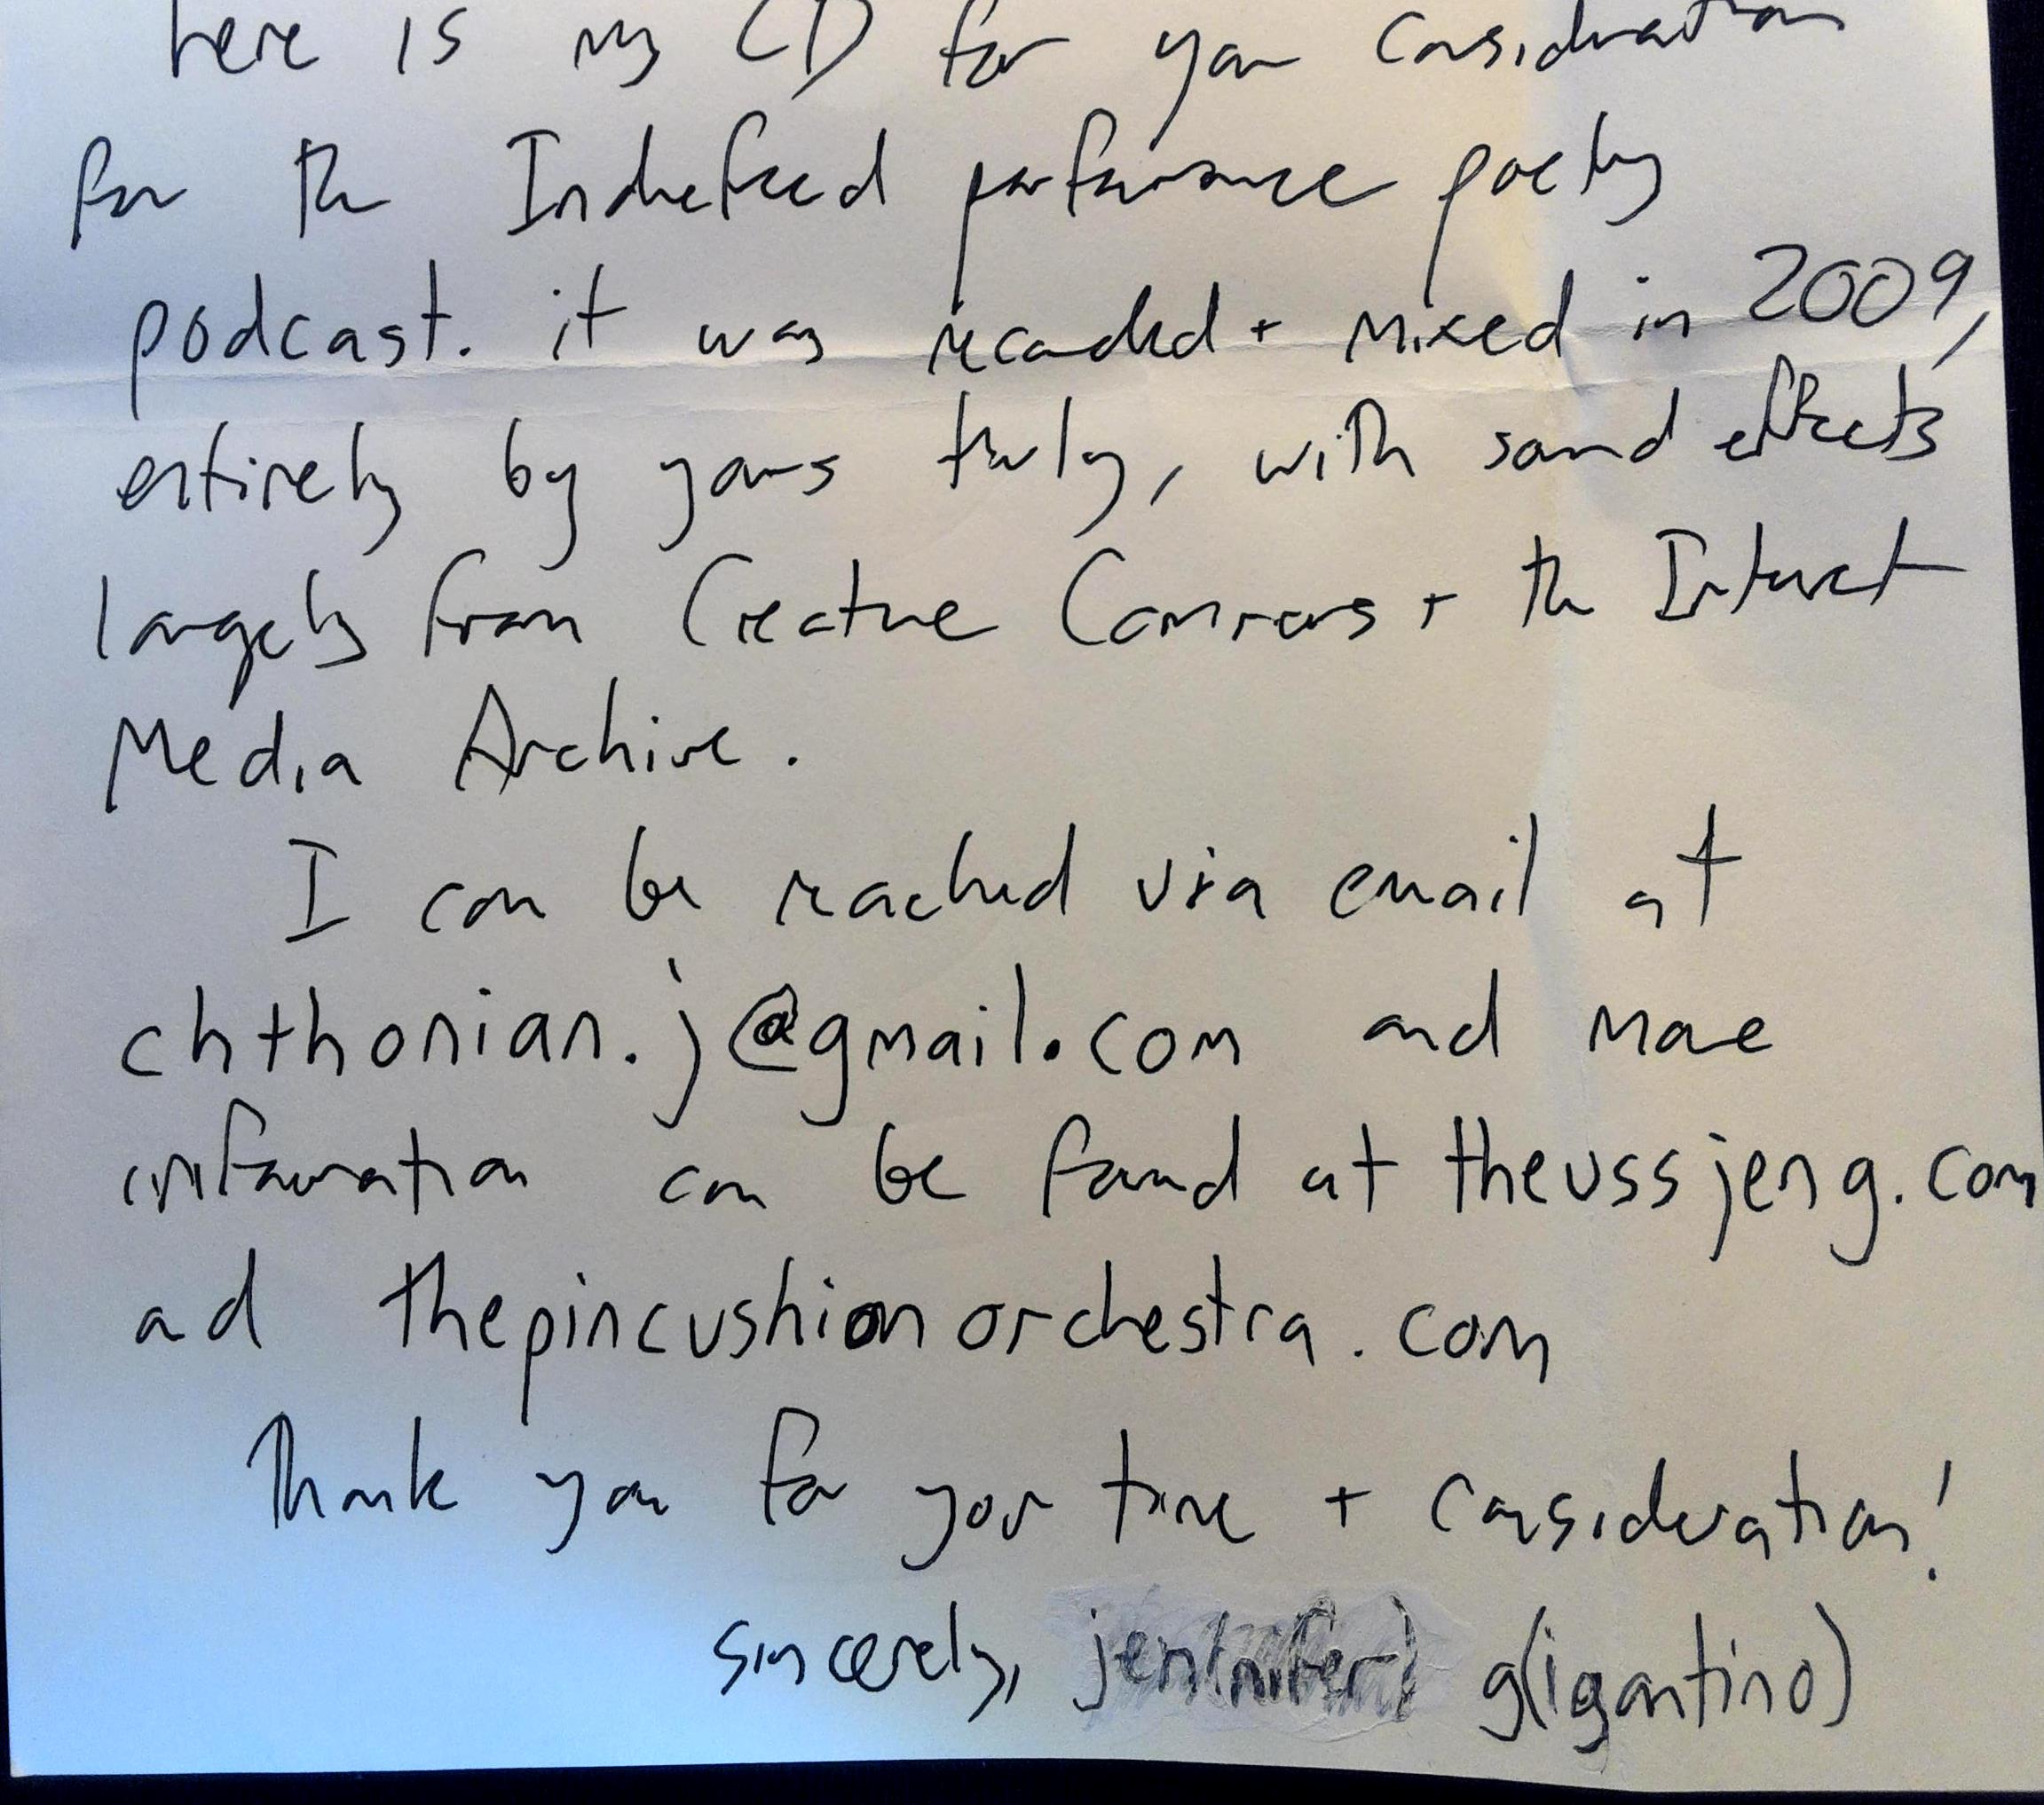 here is my CD for your consideration
for the Indiefeed performance poetry
podcast. it was recorded + mixed in 2009,
entirely by yours truly, with sound effects
largely from Creative Commons + the Internet
Media Archive.
I can be reached via email at
chthonian.j@gmail.com and more
information can be found at theussjeng.com
ad thepincushionorchestra.com
Thank you for your time + consideration!
sincerely, jen(nifer) g(igantino)